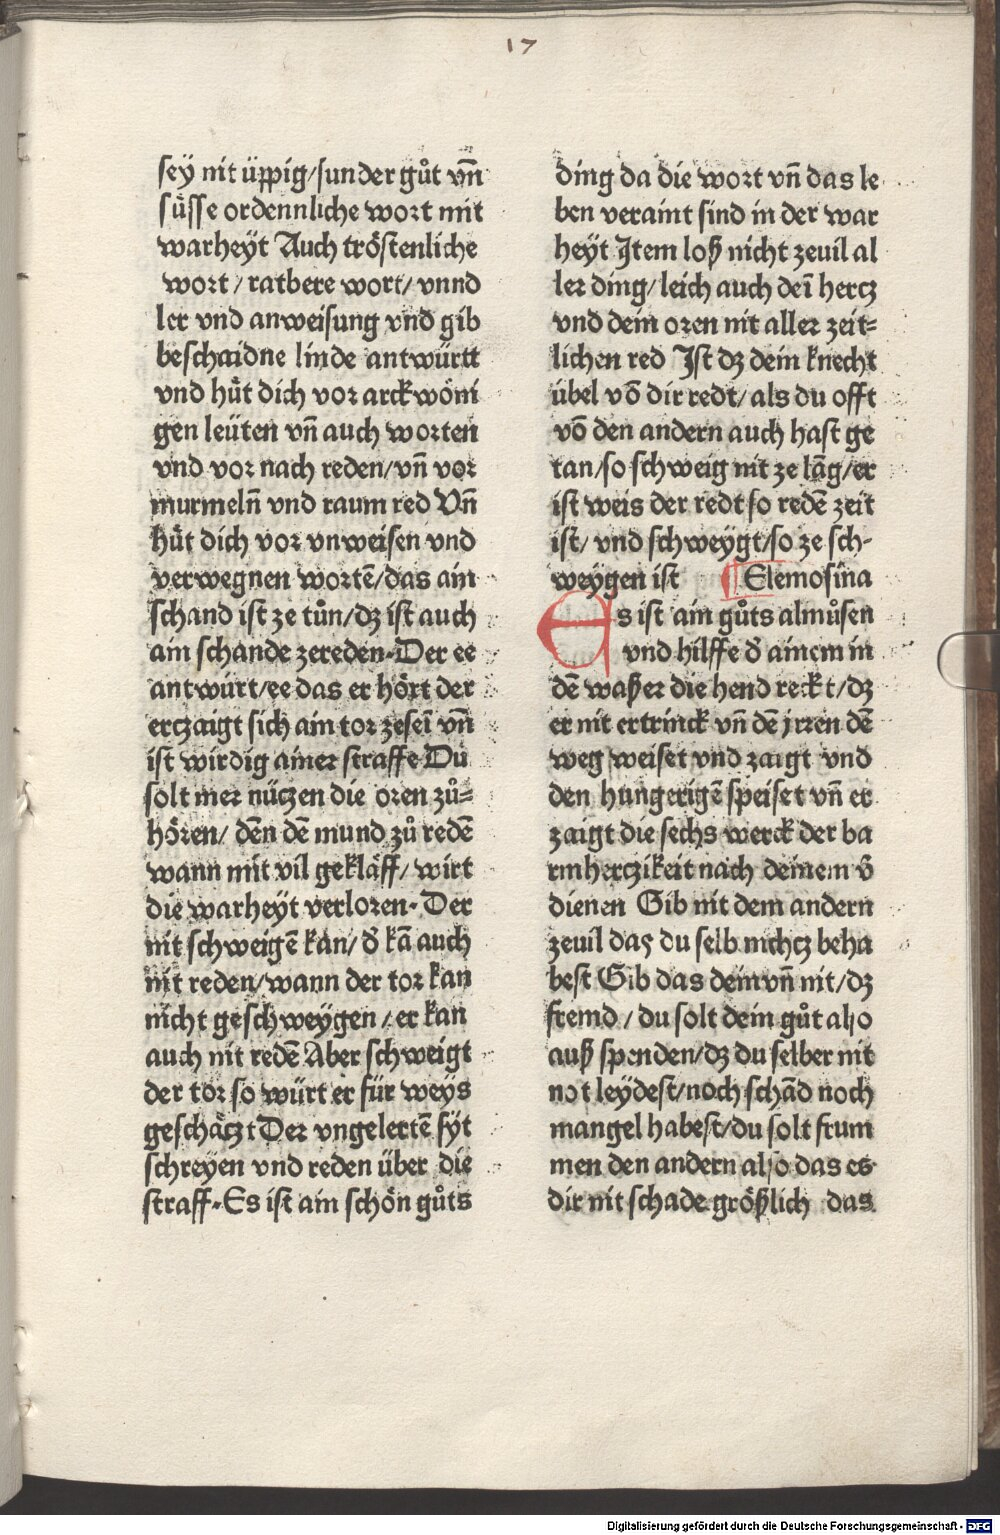 17
sey nit üppig/sunder gůt vnͫ
süsse ordennliche wort mit
warheyt Auch tröstenliche
wort/ ratbere wort/ vnnd
ler vnd anweisung vnd gib
beschaidne linde antwürtt
vnd hüt dich vor arckwöni
gen leüten vn̄ auch worten
vnd vor nach reden/vn̄ vor
murmeln̄ vnd raum red Vn̄
hüt dich vor vnweisen vnd
verwegnen wortē/das ain
schand ist ze tůn/dz ist auch
ain schande zereden. Der ee
antwürt/ee das er hört der
erczaigt sich ain tor zesei vn̄
ist wirdig ainer straffe Du
solt mer nüczen die oren zů=
hören/ den dē mund zů redē
wann mit vil gekläff/ wirt
die warheyt verloren. Der
nit schweigē kan/ď kā auch
nit reden/wann der tor kan
nicht geschweygen/er kan
auch nit redē Aber schweigt
der tor so würt er für weys
geschäczt Der vngelertē syt
schreyen vnd reden über die
straff. Es ist ain schön gůts
ding da die wort vn̄ das le
ben veraint sind in der war
heyt Item loß nicht zeuil al
ler ding/leich auch deī hercz
vnd dein oren nit aller zeit=
lichen red Ist dz dein knecht
übel vō dir redt/als du offt
vō den andern auch hast ge
tan/so schweig nit ze lāg/er
ist weis der redt so redē zeit
ist/ vnd schweygt/so ze sch-
weygen ist Elemosina
Es ist ain gůts almůsen
vnd hilffe ď ainem in
dē waßer die hend reckt/dz
er nit ertrinck vn̄ dē jrren dē
weg weiset vnd zaigt vnd
den hungerigē speiset vn̄ er
zaigt die sechs werck der ba
rmherczikeit nach deinem v̄
dienen Gib nit dem andern
zeuil das du selb nichcz beha
best Gib das dein vn̄ nit/dz
fremd/du solt dein gůt also
auß spenden/dz du selber nit
not leydest/noch schād noch
mangel habest/du solt frum
men den andern also das es
dir nit schade größlich das
Digitalisierung gefördert durch die Deutsche Forschungsgemeinschaft - DFG